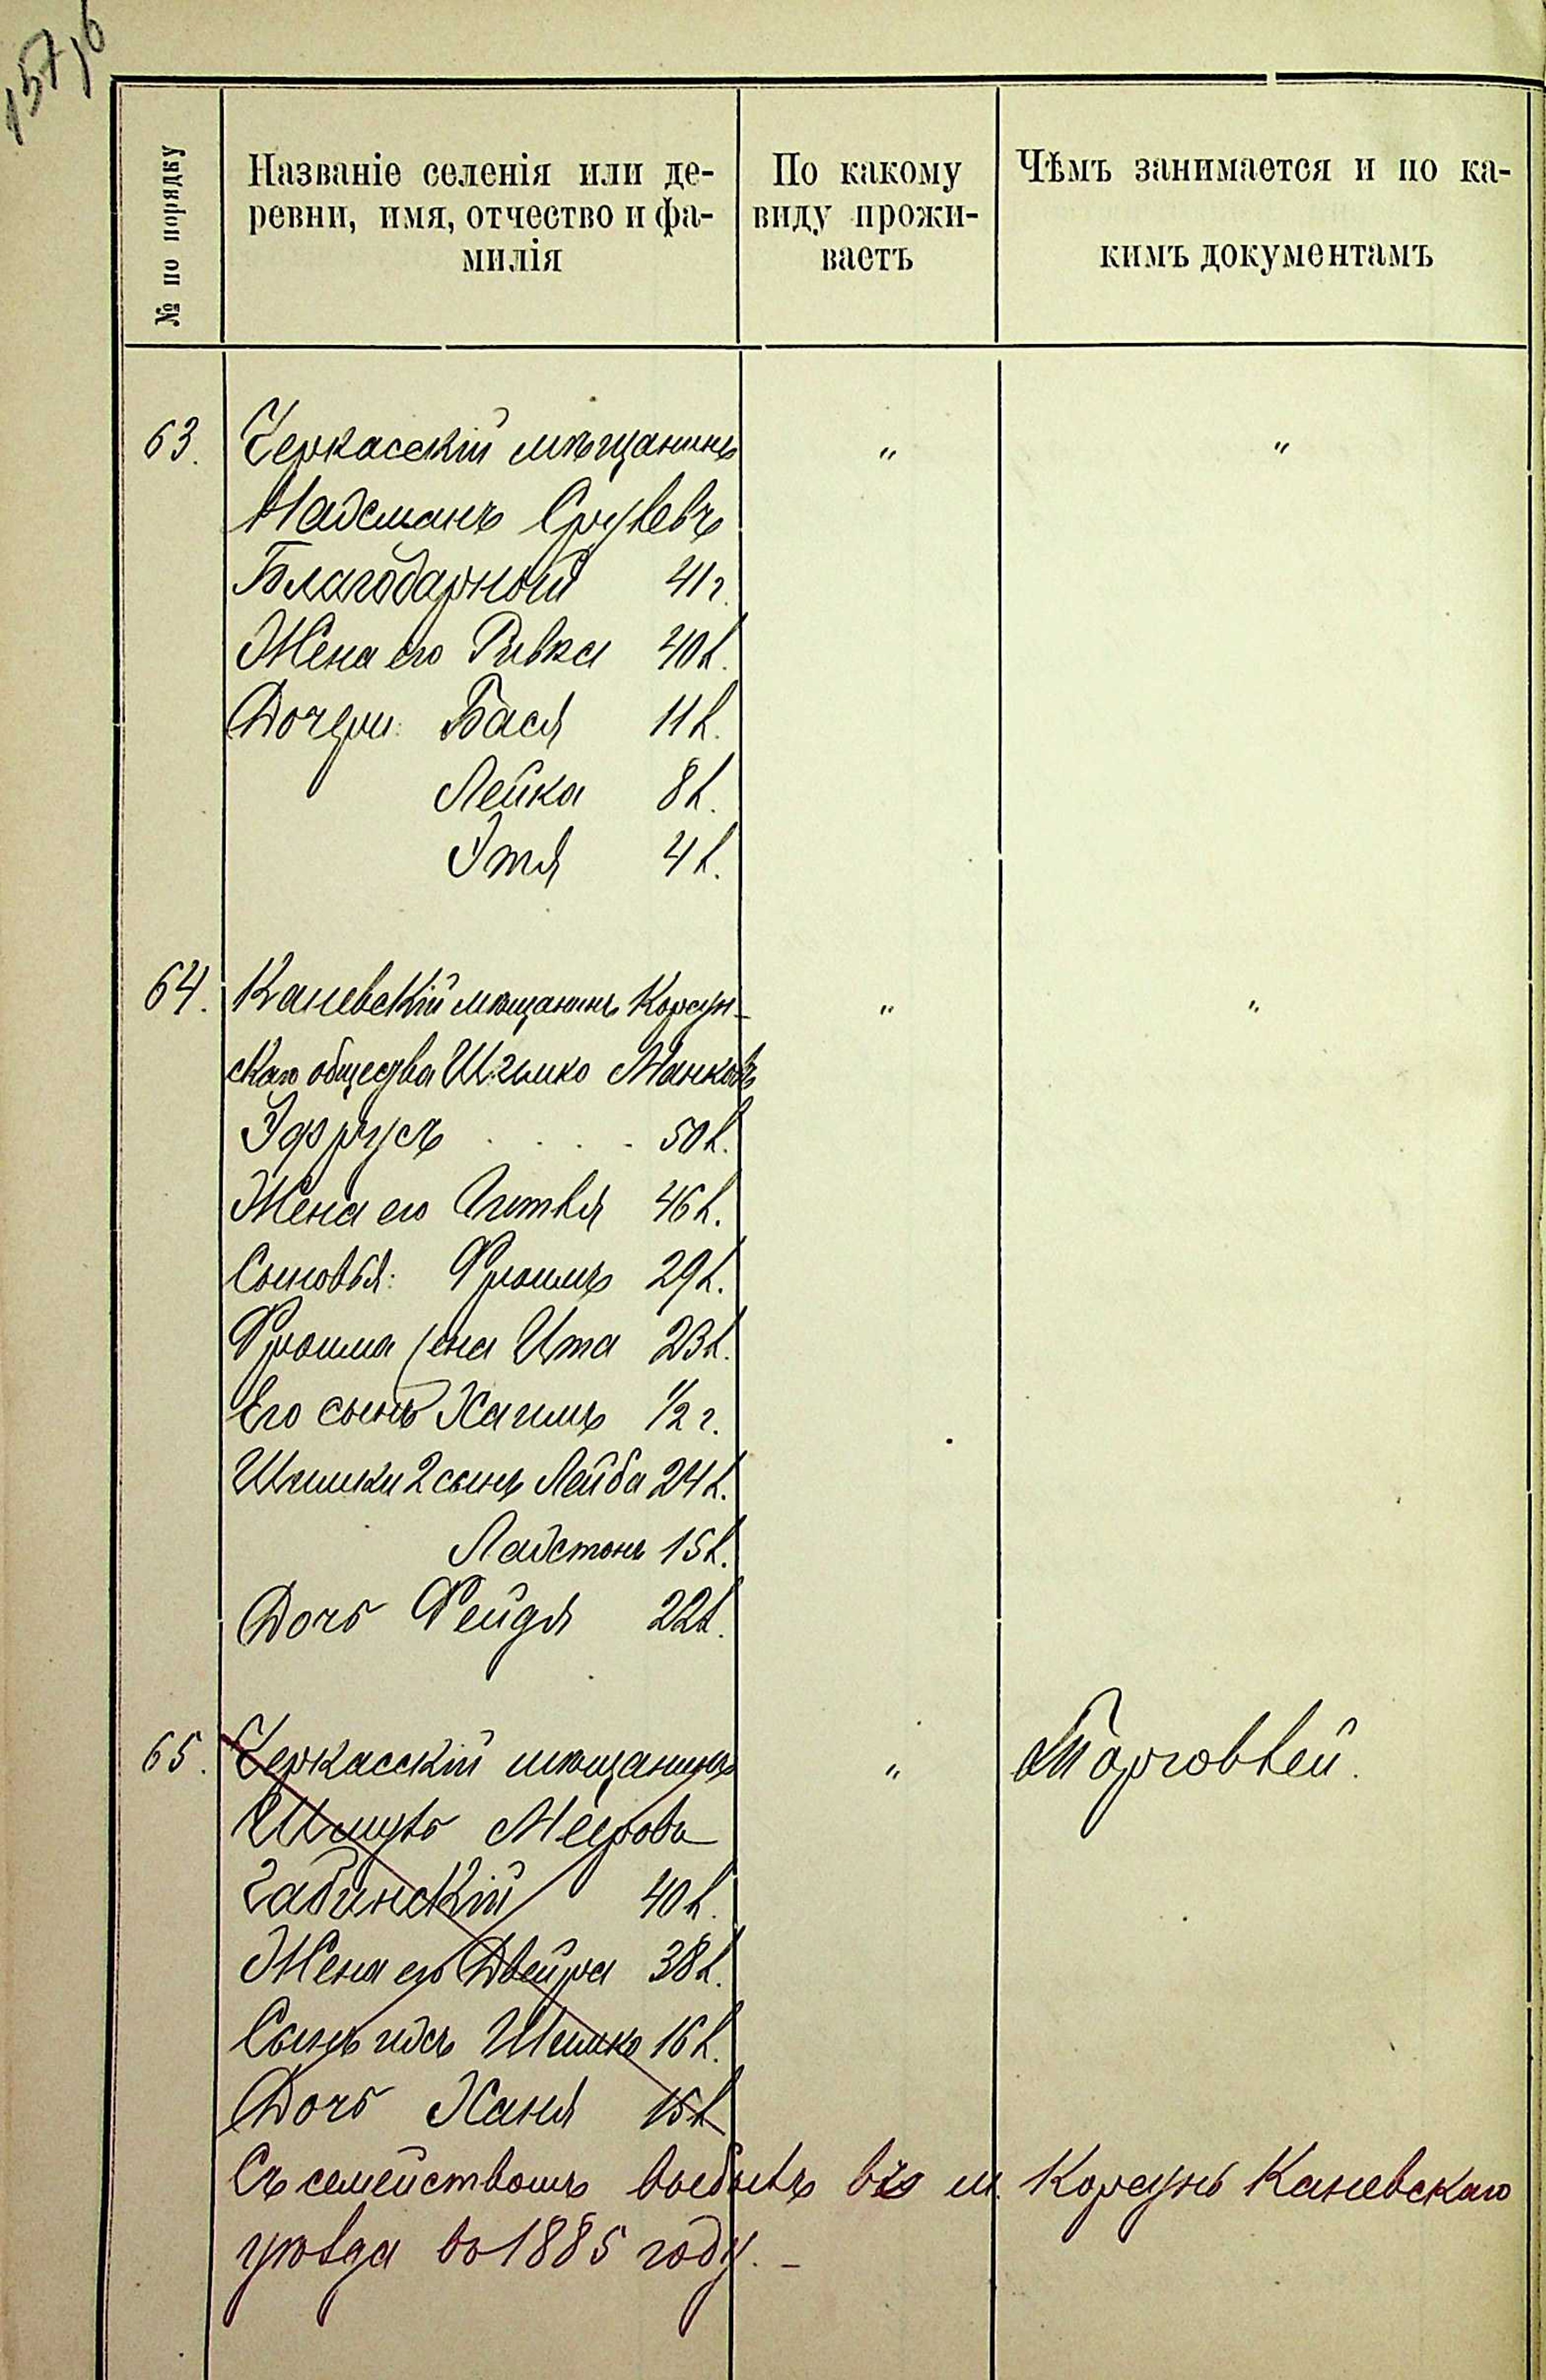 157,б
№ по порядку
Названіе селенія или де-
ревни, имя, отчество и фа-
милія
По какому
виду прожи-
ваетъ
Чѣмъ занимается и по ка-
кимъ документамъ
63. Черкасскій мѣщанинъ " "
Срулевъ
Благодарный 41 г.
Жена его Ривка 40 л.
Дочери: Бася 11 л.
Лейка 8 л.
Этя 4 л.
64. Каневскій мѣщанинъ Корсун- " "
скаго общества Шимко Манковъ
Эфрусъ . . . . 50 л.
Жена его Гитля 46 л.
Сыновья: Фроимъ 29 л.
Фроима жена Ита 23 л.
Его сынъ Хаимъ 1/2 г.
Шимки 2 сынъ Лейба 24 л.
15 л.
Дочь Фейдя 22 л.
65. Черкасскій мѣщанинъ " Торговлей.
Шмуль Меерова
Габинскій 40 л.
Жена его Двейра 38 л.
Сынъ ихъ Шимко 16 л.
Дочь Ханя 15 л.
Съ семействомъ выбылъ въ м. Корсунь Каневскаго
уѣзда въ 1885 году. –